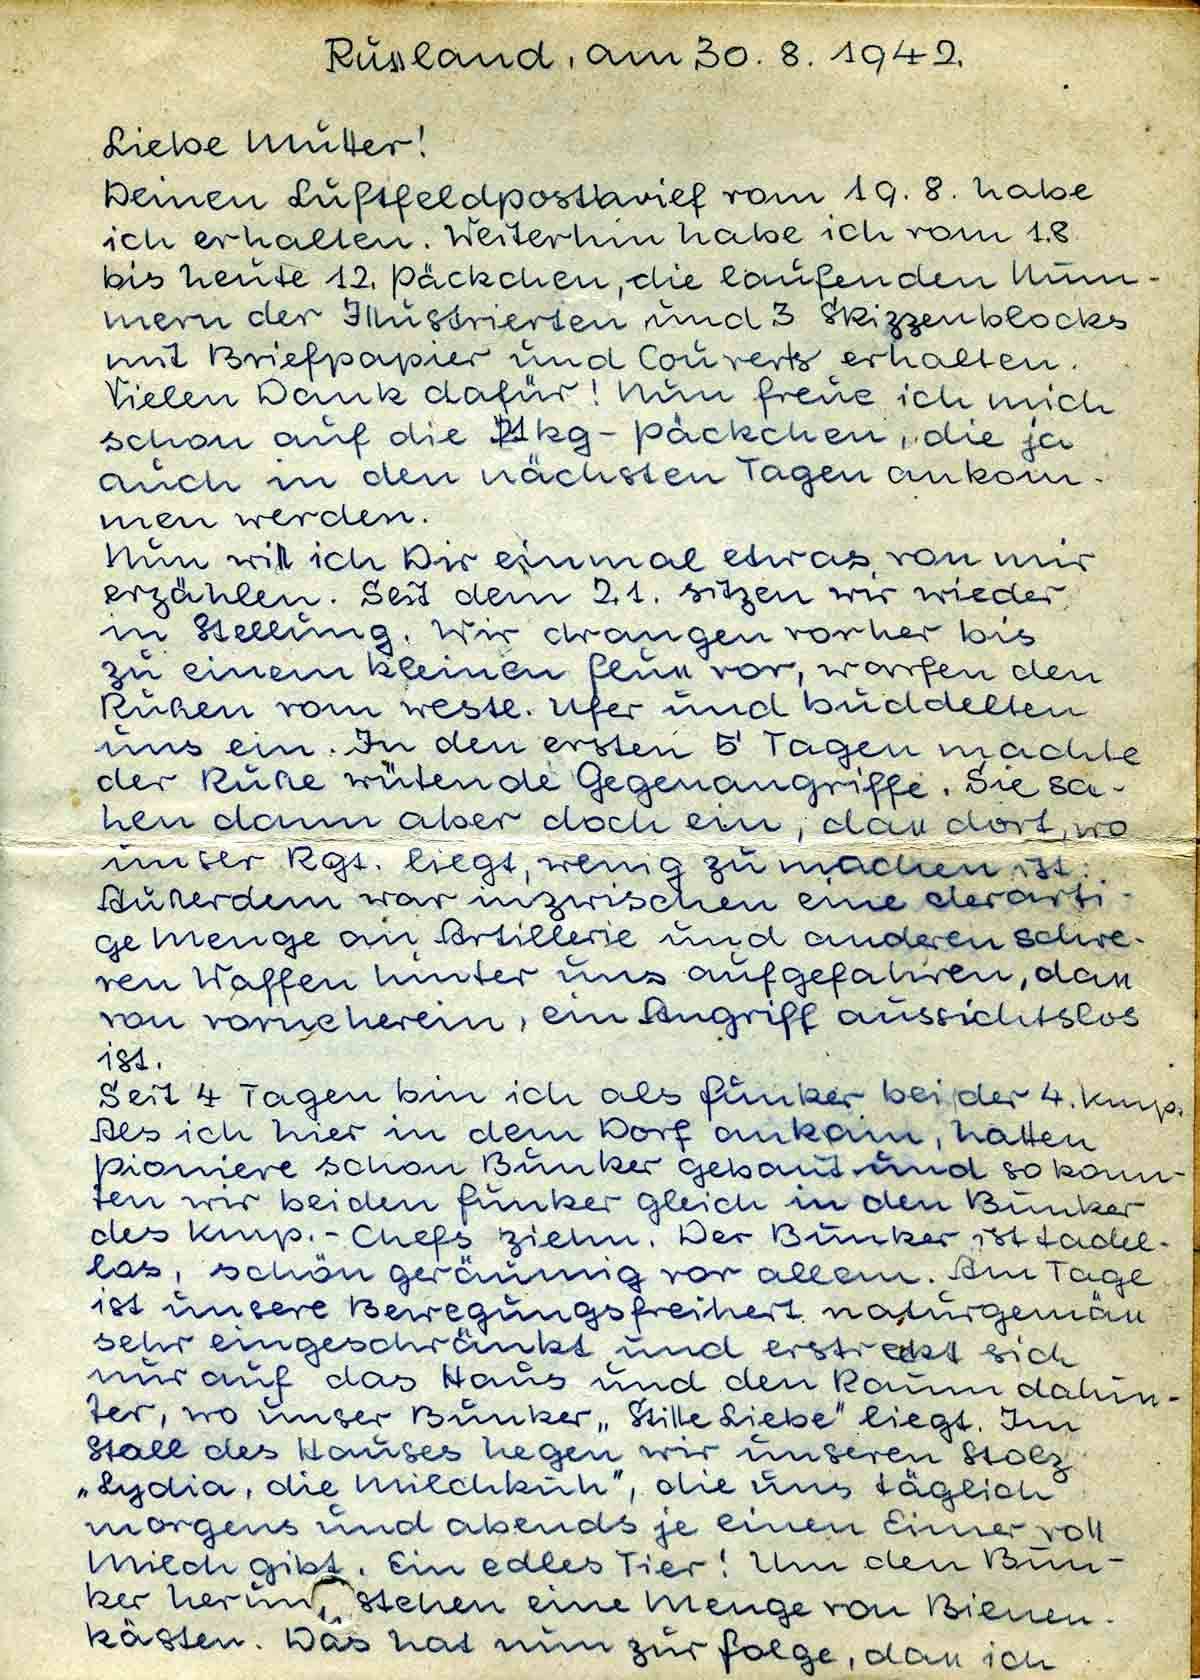 Russland, am 30. 8. 1942.
Liebe Mutter!
Deinen Luftfeldpostbrief vom 19. 8. habe
ich erhalten. Weiterhin habe ich vom 1.8.
bis heute 12 Päckchen, die laufenden Num-
mern der Illustrierten und 3 Skizzenblocks
mit Briefpapier und Couverts erhalten.
Vielen Dank dafür! Nun freue ich mich
schon auf die 1 kg-Päckchen, die ja
auch in den nächsten Tagen ankom-
men werden.
Nun will ich Dir einmal etwas von mir
erzählen. Seit dem 21. sitzen wir wieder
in Stellung. Wir drangen vorher bis
zu einem kleinen Fluss vor, warfen den
Russen vom westl. Ufer und buddelten
uns ein. In den ersten 5 Tagen machte
der Russe wütende Gegenangriffe. Sie sa-
hen dann aber doch ein, dass dort, wo
unser Rgt. liegt, wenig zu machen ist.
Ausserdem war inzwischen eine derarti-
ge Menge an Artillerie und anderen schwe-
ren Waffen hinter uns aufgefahren, dass
von vorneherein, ein Angriff aussichtslos
ist.
Seit 4 Tagen bin ich als Funker bei der 4. Kmp.
Als ich hier in dem Dorf ankam, hatten
Pioniere schon Bunker gebaut und so konn-
ten wir beiden Funker gleich in den Bunker
des Kmp.-Chefs ziehn. Der Bunker ist tadel-
los, schön geräumig vor allem. Am Tage
ist unsere Bewegungsfreiheit naturgemäss
sehr eingeschränkt und erstreckt sich
nur auf das Haus und den Raum dahin-
ter, wo unser Bunker „Stille Liebe" liegt. Im
Stall des Hauses hegen wir unseren Stolz
„Lydia, die Milchkuh", die uns täglich
morgens und abends je einen Eimer voll
Milch gibt. Ein edles Tier! Um den Bun-
ker herum, stehen eine Menge von Bienen-
kästen. Das hat nun zur Folge, dass ich